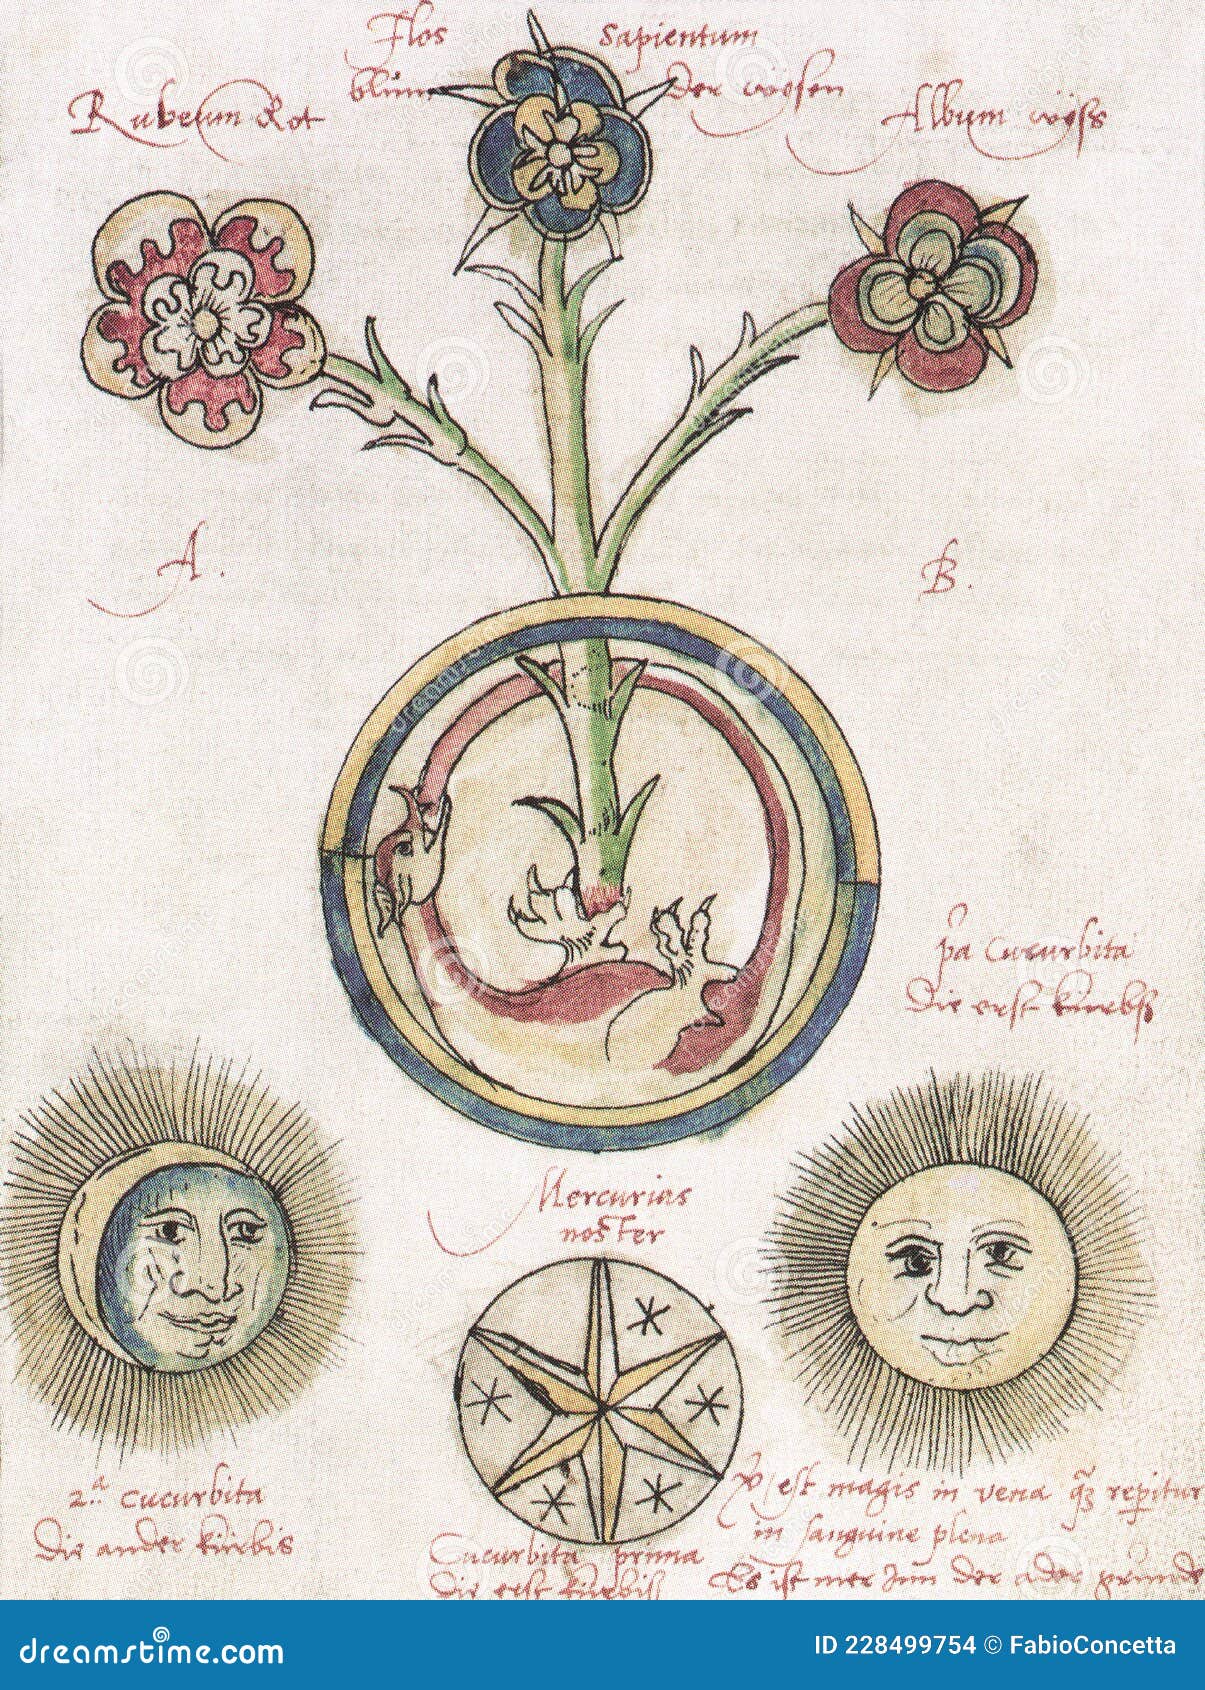 Flos Sapientum
blüm der wysen
Rubeum Rot
Album wyss
A.
B.
pa Cucurbita
Die erst kürbß
Mercurius
noster
2.a cucurbita
Die ander kürbis
est magis in vena qz repitur
in sanguine plena
Cucurbita prima
Die erst kürbiß
Es ist mer Inn der ader
dreamstime.com
ID 228499754 © FabioConcetta